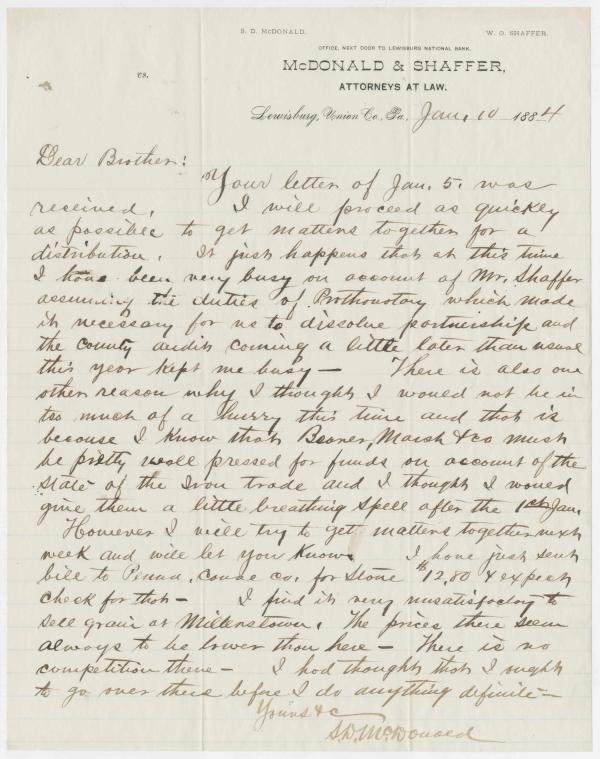 S. D. McDONALD. W. O. SHAFFER.
OFFICE, NEXT DOOR TO LEWISBURG NATIONAL BANK.
cs.
McDONALD & SHAFFER,
ATTORNEYS AT LAW.
Lewisburg, Union Co., Pa. Jan. 10 1884
Dear Brother:
Your letter of Jan. 5. was
received. I will proceed as quickly
as possible to get matters together for a
distribution. It just happens that at this time
I have been very busy on account of Mr. Shaffer
assuming the duties of Prothonotary which made
it necessary for us to dissolve partnership and
the county audit coming a little later than usual
this year kept me busy — There is also one
other reason why I thought I would not be in
too much of a hurry this time and that is
because I know that Beaver, Marsh & co must
be pretty well pressed for funds on account of the
state of the Iron trade and I thought I would
give them a little breathing spell after the 1st Jan.
However I will try to get matters together next
week and will let you know. I have just sent
bill to Penna. Canal co. for Stone $12.80 & expect
check for that — I find it very unsatisfactory to
sell grain at Millerstown. The prices there seem
always to be lower than here — There is no
competition there — I had thought that I ought
to go over there before I do anything definite —
Yours &c
S.D. McDonald